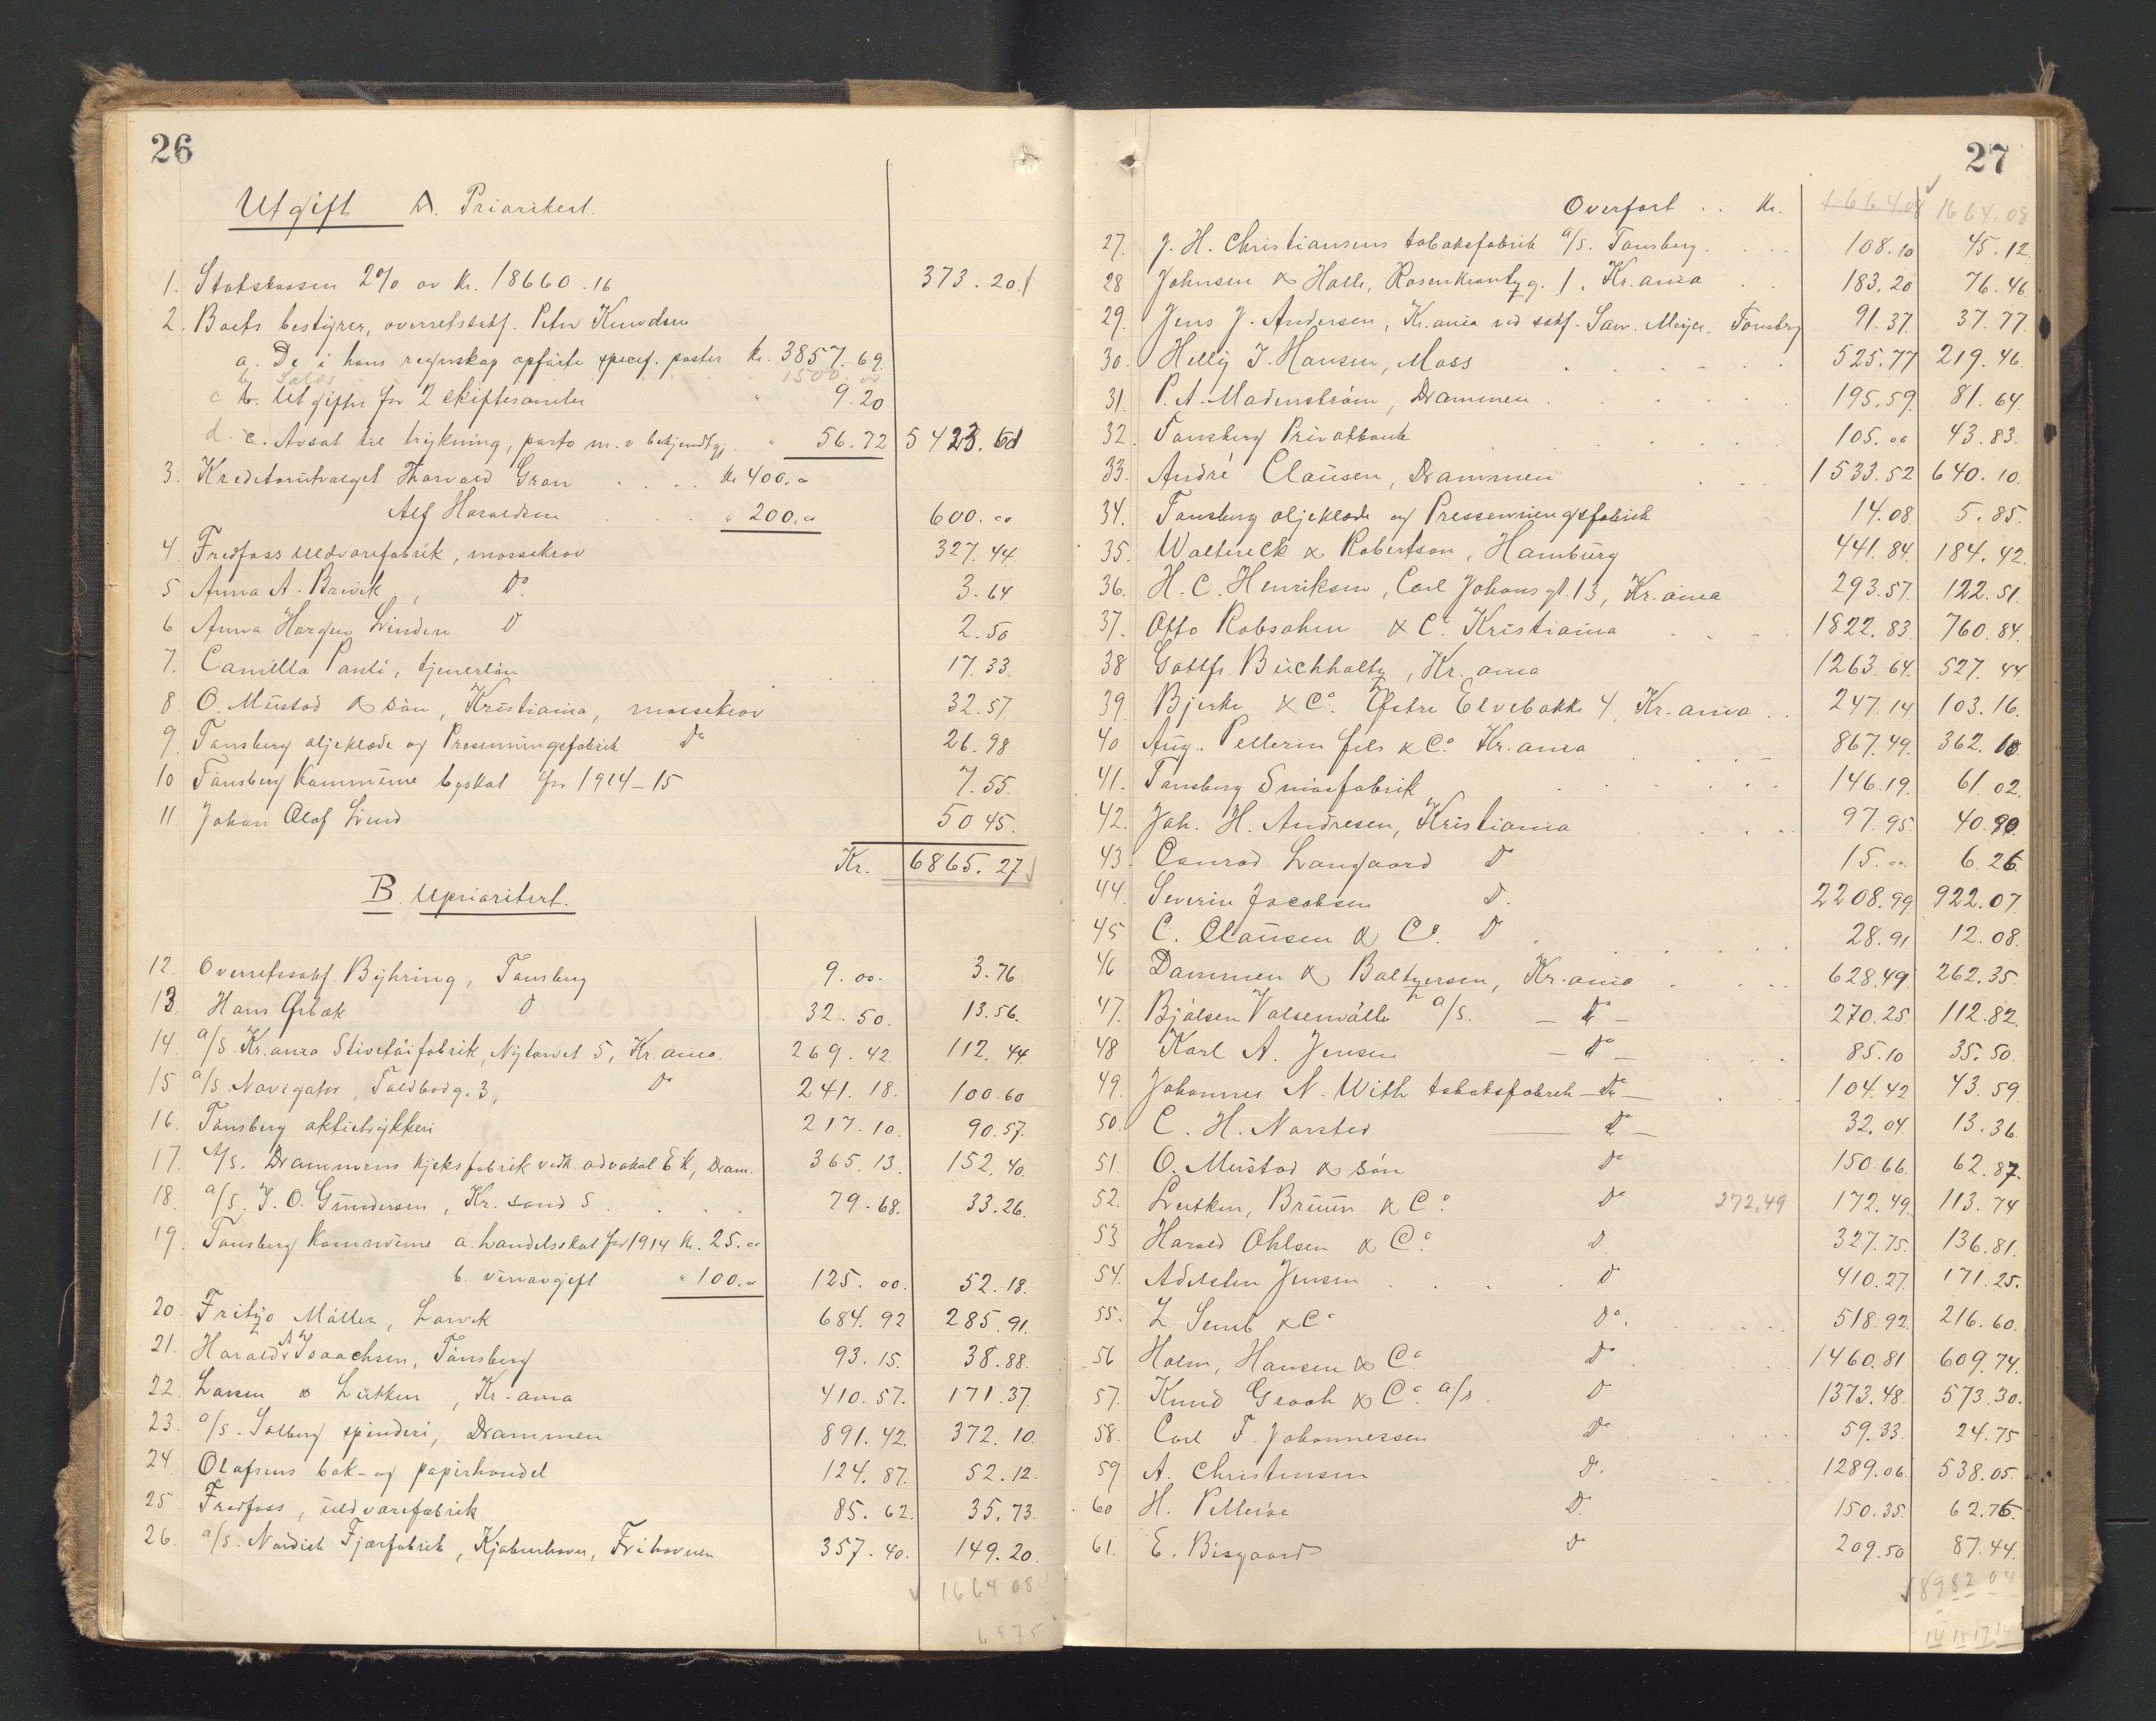 26
Utgift A. Prioritert.
1. Statskassen 2% av kr. 18660.16 373.20
2. Boets bestyrer, overretssakf. Peter Knudsen
a. De i hans regnskap opførte specif. poster kr. 3857.69
b. Salær 1500.00
c b. Utgifter for 2 skiftesamler " 9.20
d. c. Avsat til trykning, porto m.v. bekjendtgj. " 56.72 5423.61
3. Kreditorutvalget Thorvald Gran . . . . kr 400.00
Alf Haraldsen . . . . " 200.00 600.00
4. Fredfoss uldvarefabrik, massekrav 327.44
5 Anna A. Brevik, Do. 3.64
6 Anna Horgen Linden D 2.50
7. Camilla Pauli, tjenerløn 17.33.
8 O. Mustad & søn, Kristiania, massekrav 32.57.
9. Tønsberg oljeklæde og Presenningsfabrik Do 26.98
10 Tønsberg Kommune byskat for 1914-15 7.55.
11. Johan Olaf Lind 50 45.
Kr. 6865.27
B. Uprioritert.
12. Overretssakf. Byhring, Tønsberg 9.00. 3.76
13 Hans Ørbæk D 32.50. 13.56.
14. a/s. Kr.ania Stivetøifabrik, Nytorvet 5, Kr.ania. 269.42. 112.44
15 a/s Navigator, Toldbodg. 3, Do 241.18. 100.60
16. Tønsberg aktietrykkeri 217.10. 90.57.
17. A/s. Drammens kjeksfabrik vedk. advokat Ek, Dram. 365.13. 152.40.
18. a/s. J. O. Gundersen, Kr.sand S. . . . 79.68. 33.26.
19. Tønsberg Kommune a. handelsskat for 1914 kr. 25.00
b. vinavgift " 100.00 125.00. 52.18.
20. Fritzo Møller, Larvik 684.92 285.91.
21. Harald A. Isaachsen, Tønsberg 93.15. 38.88.
22. Larsen & Lütken, Kr.ania 410.57. 171.37.
23. a/s. Solberg spinderi, Drammen 891.42. 372.10.
24. Olafsens bok- og papirhandel 124.87. 52.12.
25. Fredfoss, uldvarefabrik 85.62. 35.73.
26. a/s. Nordisk Fjærfabrik, Kjøbenhavn, Frihavnen 357.40. 149.20.
1664 08
6575
27
Overført . . Kr. 1664.08 1664.08
27. J. H. Christiansens tobaksfabrik a/s. Tønsberg. . . . 108.10 45.12.
28 Johnsen & Halle, Rosenkrantzg. 1, Kr.ania . . 183.20 76.46
29. Jens J. Andersen, Kr.ania ved sakf. Sam. Meyer, Tønsberg 91.37. 37.77.
30. Helly J. Hansen, Moss . . . . . 525.77 219.46.
31. P. A. Madenstrøm, Drammen . . . . . 195.59. 81.64.
32. Tønsberg Privatbank . . . . . 105.00 43.83.
33. André Clausen, Drammen . . . 1533.52 640.10.
34. Tønsberg oljeklæde og Pressenningsfabrik 14.08. 5.85.
35. Waltneck & Robertson, Hamburg 441.84. 184.42.
36. H. C. Henriksen, Carl Johans gt. 13, Kr.ania 293.57. 122.51.
37. Otto Robsahm & Co. Kristiania . . . 1822.83. 760.84.
38 Gottfr. Buchholtz, Kr.ania 1263.64. 527.44.
39. Bjerke & Co. Østre Elvebakke 4, Kr.ania . . 247.14 103.16.
40 Aug. Pellerin fils & Co. Kr.ania . . . . 867.49. 362.10.
41. Tønsberg Smørfabrik . . . . . 146.19. 61.02.
42. Joh. H. Andresen, Kristiania . . . . 97.95. 40.90.
43. Conrad Langaard D 15.00. 6.26
44. Severin Jacobsen D. 2208.99 922.07.
45 C. Clausen & Co. D . . . . . 28.91. 12.08.
46 Dammen & Baltzersen, Kr.ania . . . . 628.49. 262.35.
47. Bjølsen Valsemølle a/s. — Do — 270.25. 112.82.
48 Karl A. Jensen — Do — . . . 85.10 35.50.
49. Johannes N. With tobaksfabrik — Do — . . 104.42 43.59.
50. C. H. Narsted — Do — 32.04. 13.36.
51. O. Mustad & søn Do 150.66. 62.87.
52. Lütken, Bruun & Co. Do 272,49 172.49. 113.74
53 Harald Ohlsen & Co. D 327.75. 136.81.
54. Adelsten Jensen . . . . D 410.27. 171.25.
55. Z. Semb & Co Do. . . . . 518.92. 216.60.
56 Holm, Hansen & Co. Do . . . . 1460.81 609.74.
57. Knud Graah & Co. a/s. D 1373.48. 573.30.
58. Carl F. Johannessen Do . . . . 59.33. 24.75
59 A. Christensen D. . . . 1289.06. 538.05.
60 H. Pettersøe D. 150.35. 62.76.
61. E. Bisgaard Do 209.50 87.44.
8982 04
14 15 17 14